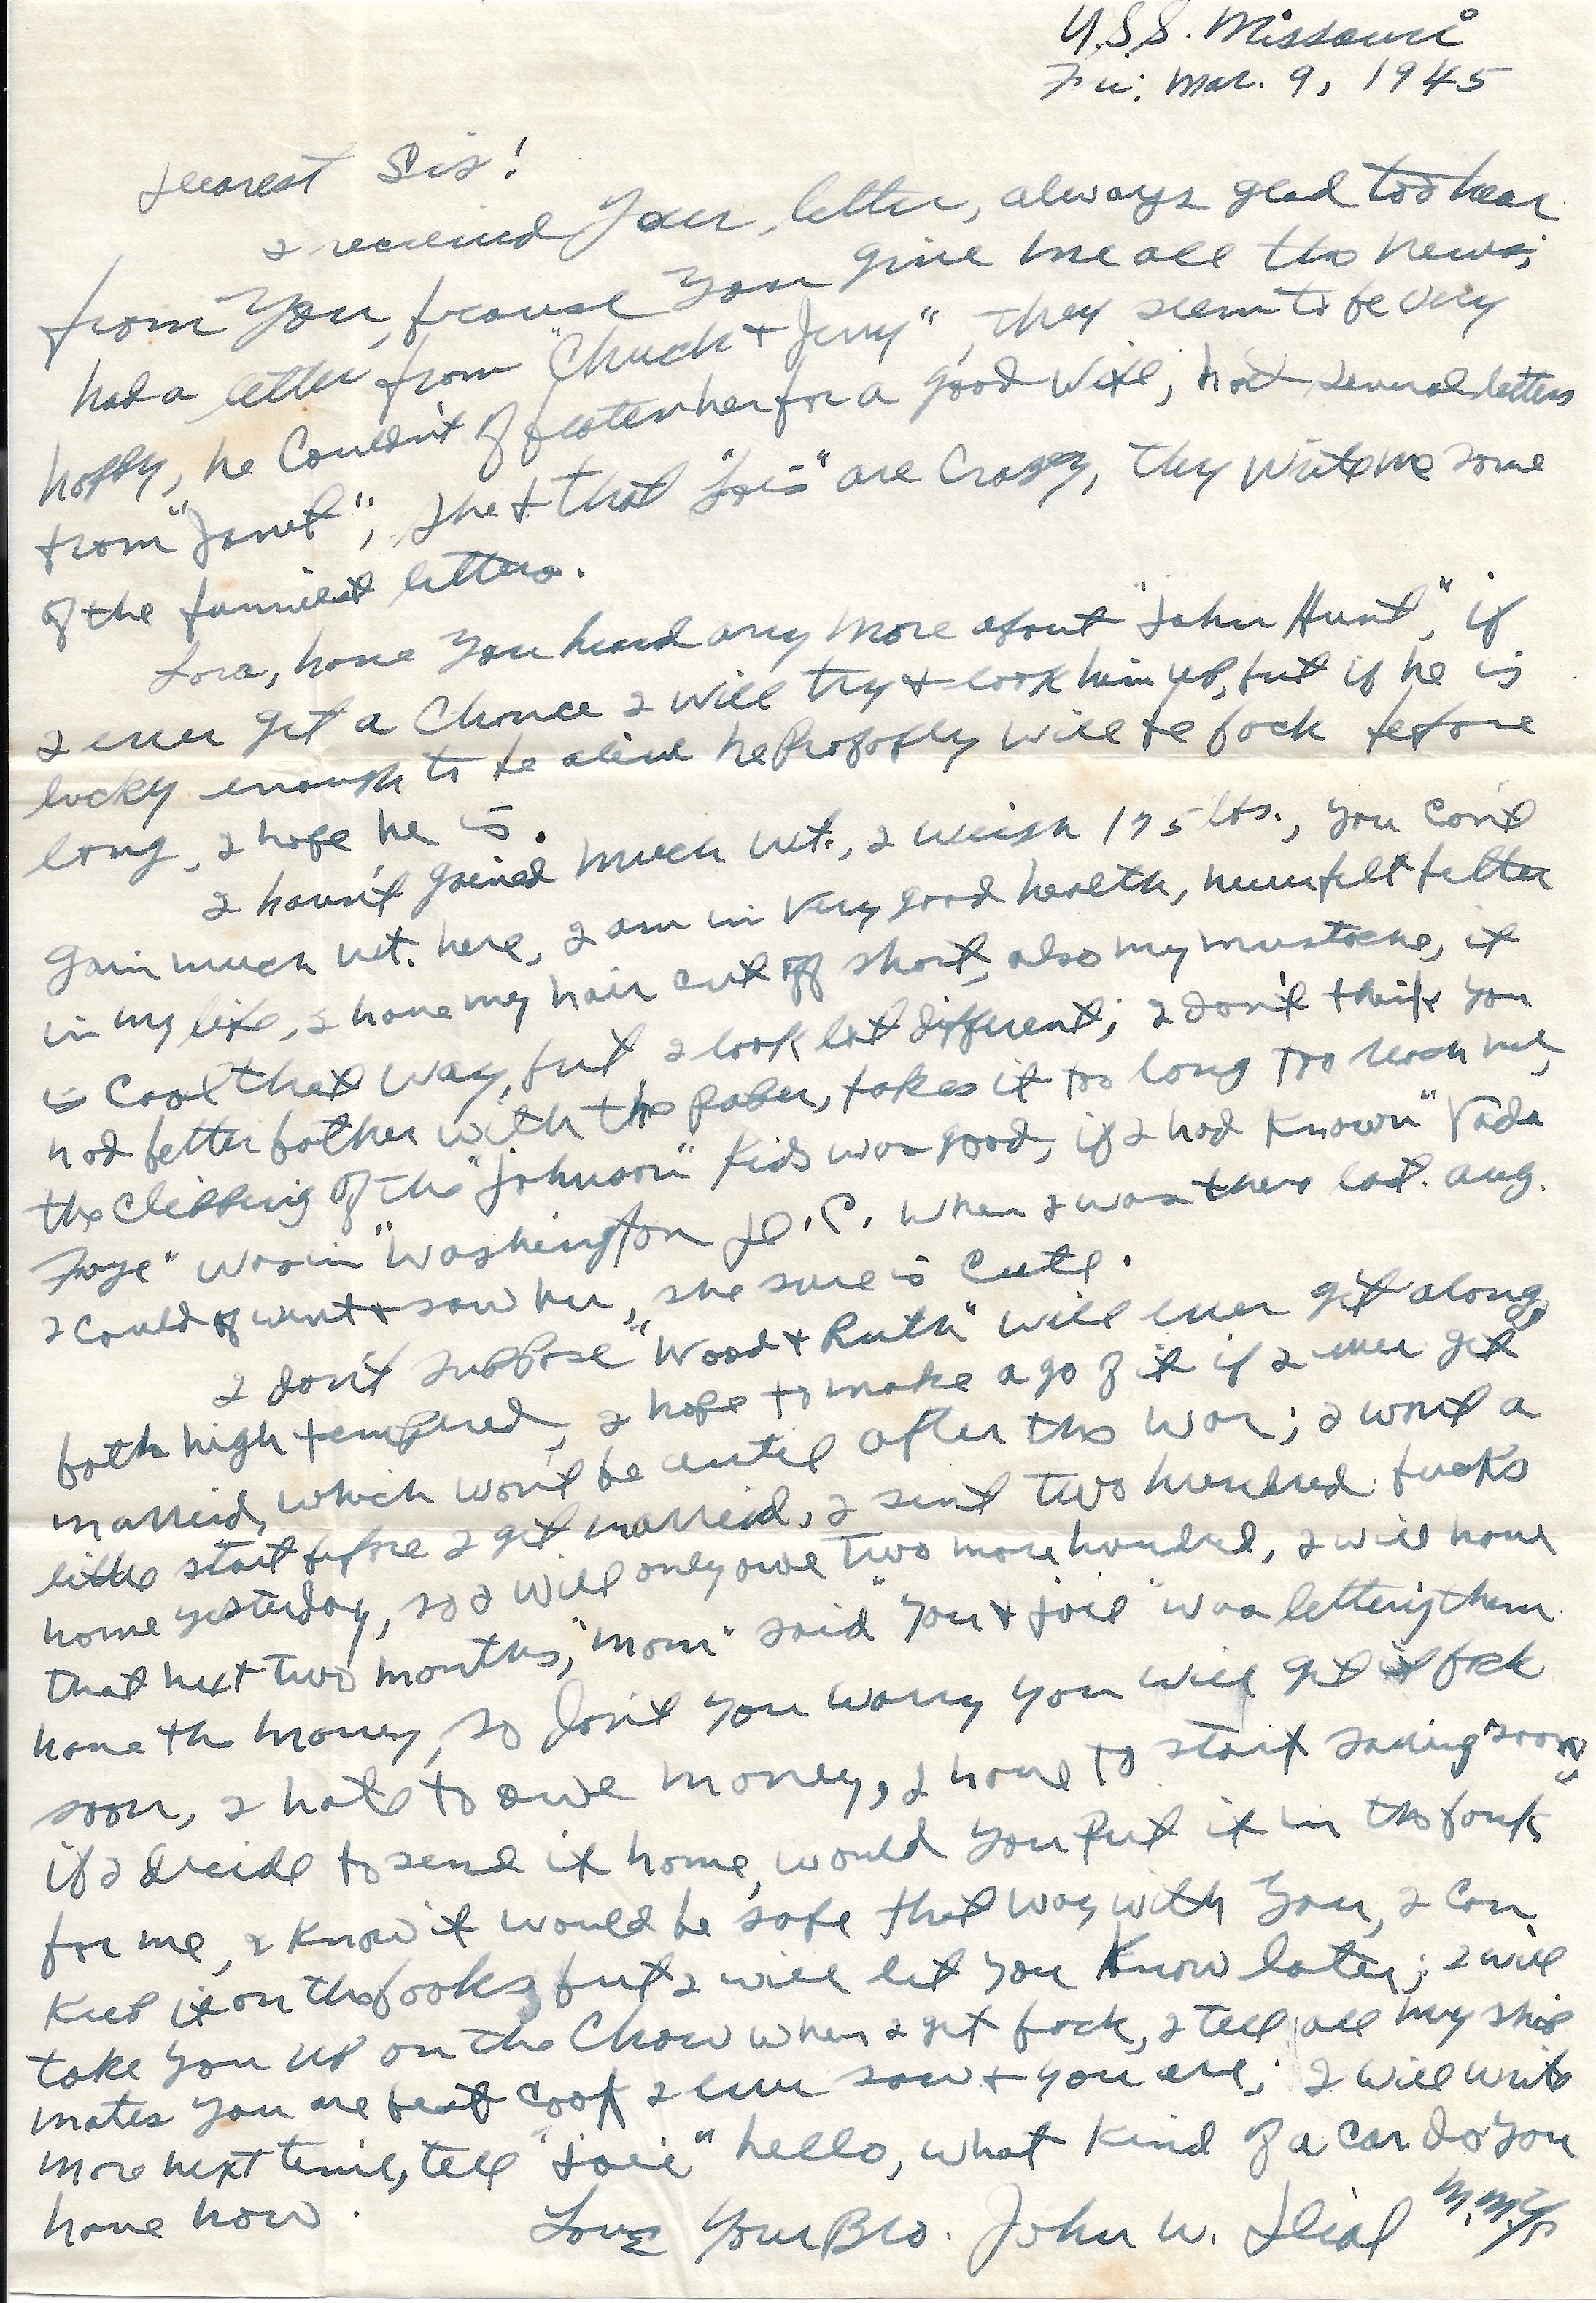 U.S.S. Missouri
Fri. Mar. 9, 1945
Dearest Sis!
I received your letter, always glad too hear
from you, because you give me all the news;
had a letter from "Chuck + Jerry", they seem to be very
happy, he couldn't of beaten her for a good wife, had several letters
from "Janet", she + that "Lois" are crazy, they write me some
of the funniest letters.
Lora, have you heard any more about "John Hunt", if
I ever get a chance I will try + look him up, but if he is
lucky enough to be alive he probably will be back before
long, I hope he is.
I havn't gained much wt., I weigh 175 lbs., you can't
gain much wt. here, I am in very good health, never felt better
in my life, I have my hair cut off short, also my mustache, it
is cool that way, but I look lot different; I don't think you
had better bother with the paper, takes it too long too reach me,
the clipping of the "Johnson" kids was good, if I had known "Vada
Faye" was in "Washington D.C. when I was there last. Aug.
I could of went + saw her, she sure is cute.
I don't suppose "Wood + Ruth" will ever get along,
both high tempered, I hope to make a go of it if I ever get
married, which won't be until after the war; I want a
little start before I get married, I sent two hundred bucks
home yesterday, so I will only owe two more hundred, I will have
that next two months, "Mom" said "you + " was letting them
have the money, so don't you worry you will get it back
soon, I hate to owe money, I have to start saving "soon",
if I decide to send it home, would you put it in the bank
for me, I know it would be safe that way with you, I can
keep it on the books but I will let you know later; I will
take you up on the chow when I get back, I tell all my ship
mates you are best cook I ever saw + you are; I will write
more next time, tell hello, what kind of a car do you
have now.
Love Your Bro. John W. Dial M.M.2/c